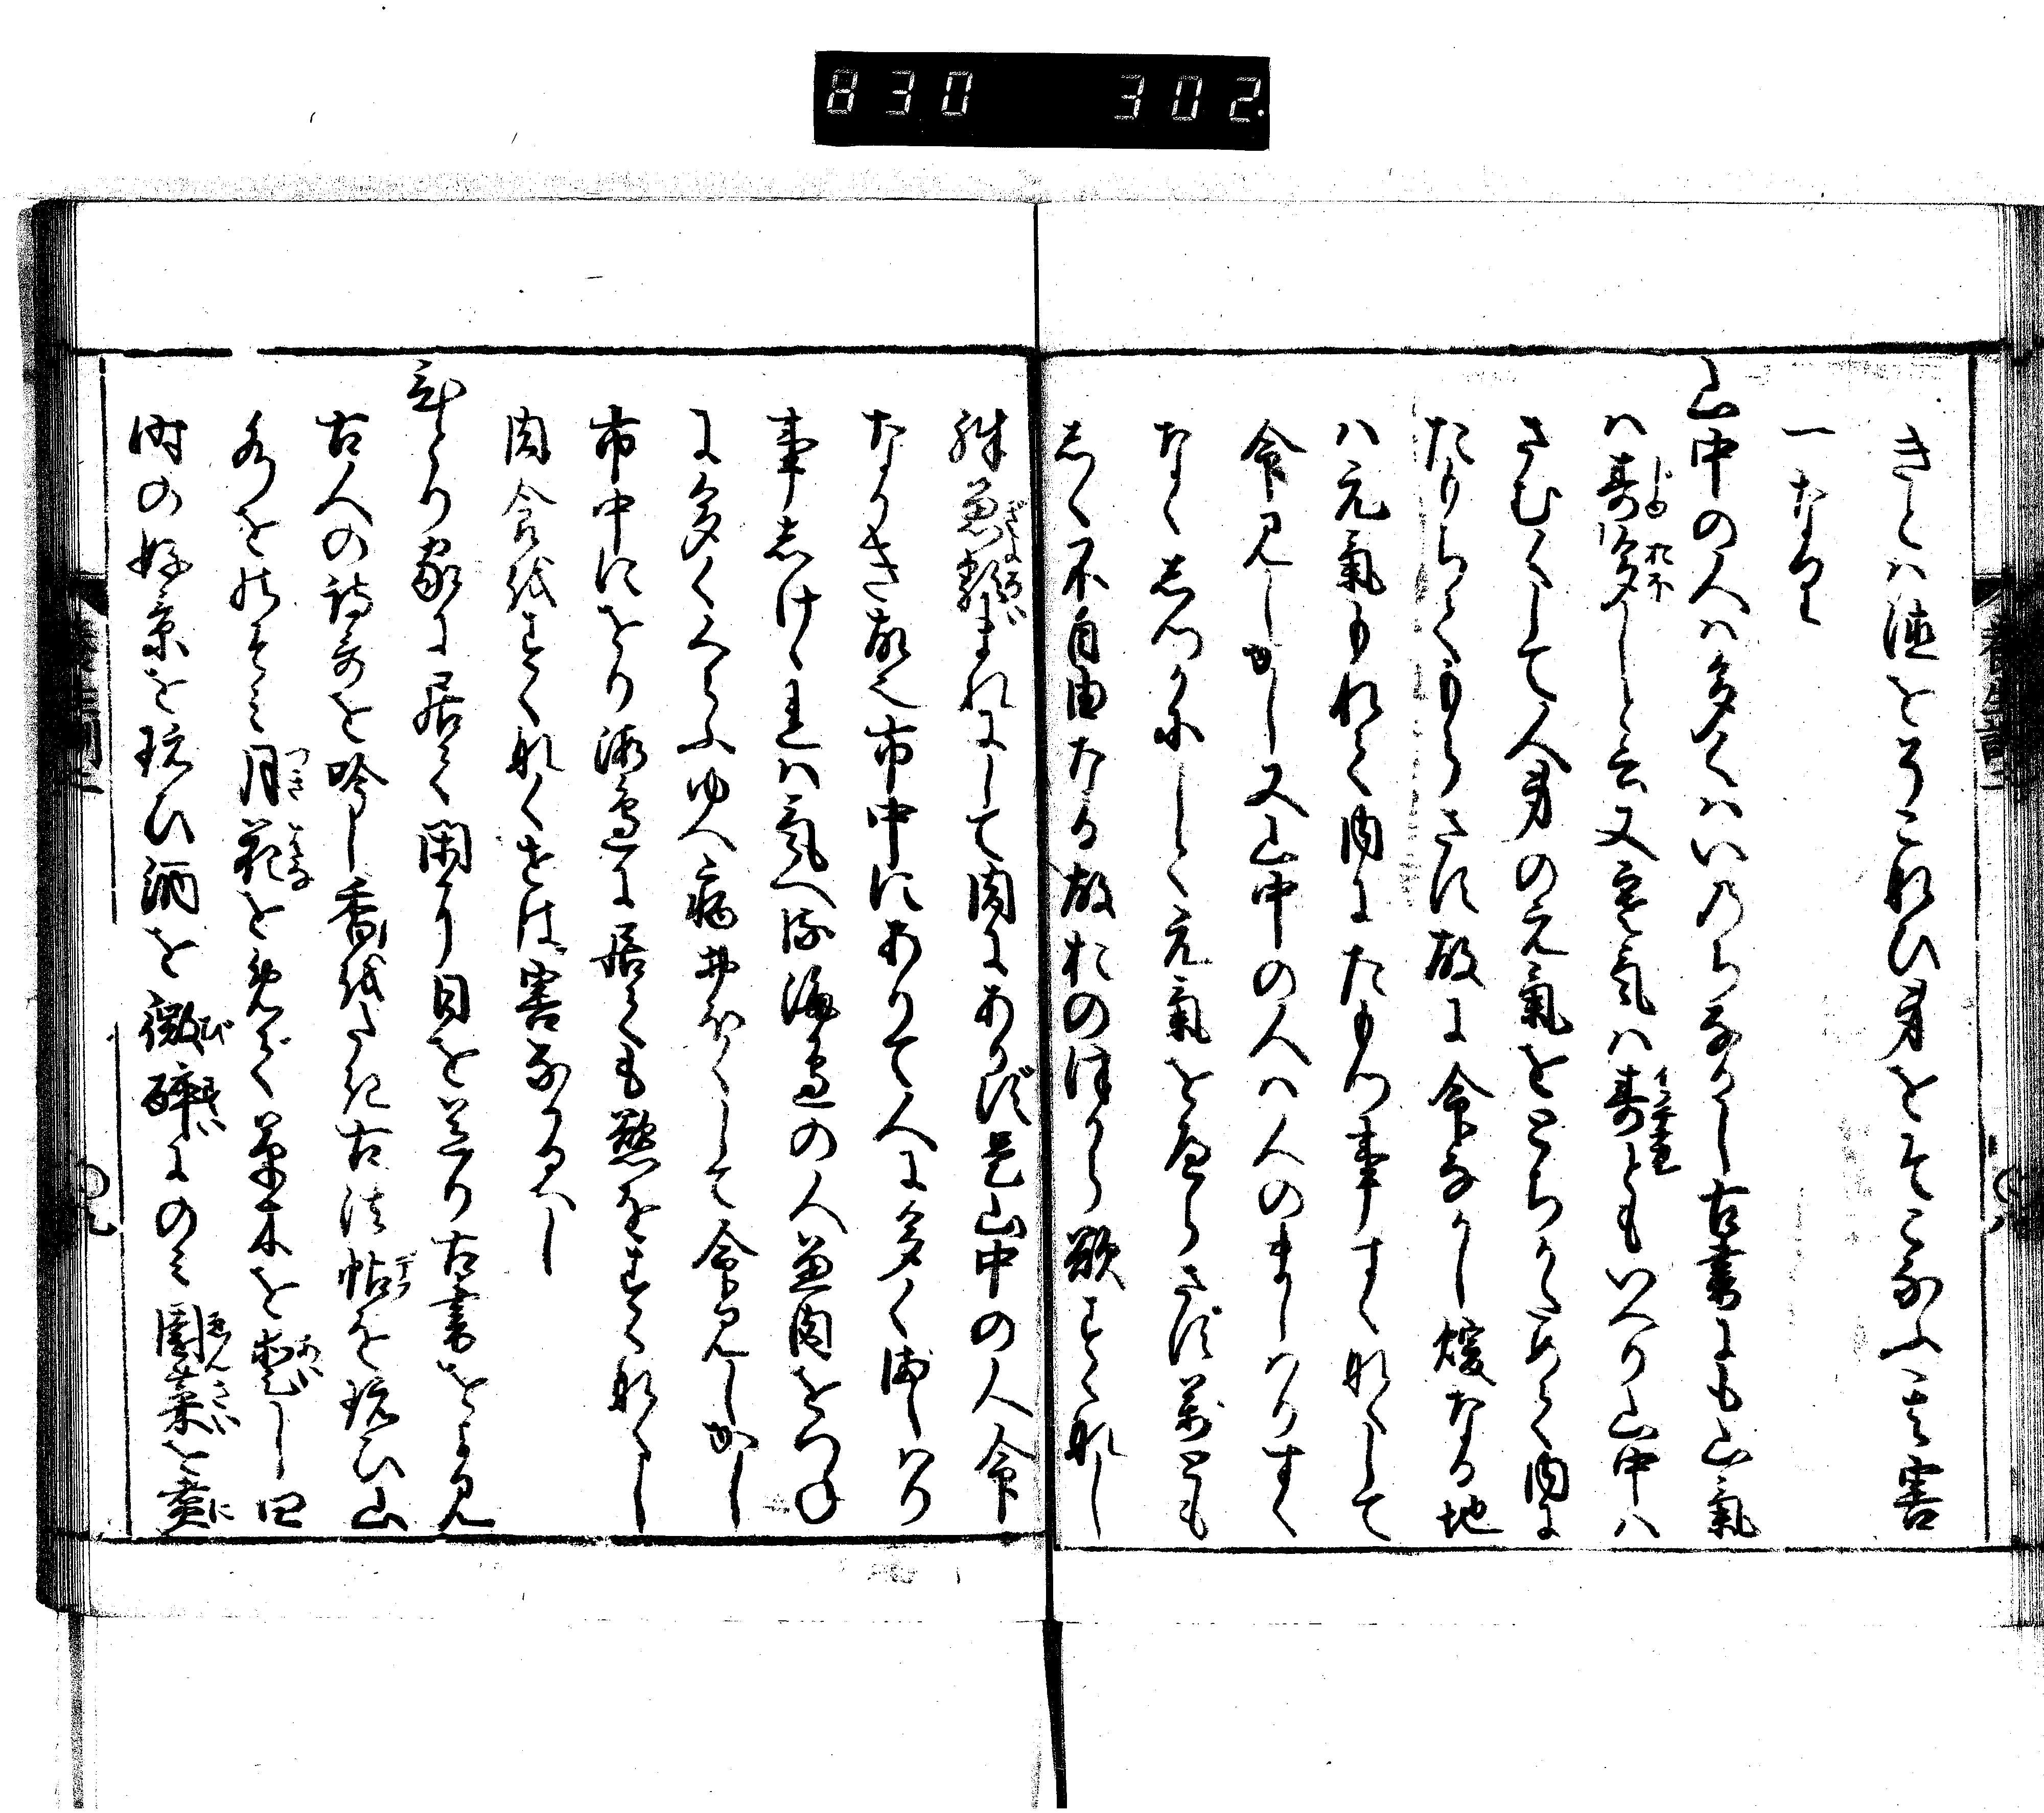 830 302.
きとは徳をそこなひ身をそこなふ其害
一なり
山中の人は多くはいのちながし古書にも山氣
は寿多しと云又寒気は寿ともいへり山中は
さむくして人身の元氣をとぢかためて内に
たもちてもらさず故に命ながし煖なる地
は元氣もれて内にたもつ事すくなくして
命みじかし又山中の人は人のまじはりすく
なくしづかにして元氣をへらさず萬ともし
く不自由なる故おのづから慾すくなし
殊魚類まれにして肉にあかず是山中の人命
ながき故也市中にありて人に多くまじはり
事しげければ気へる海邊の人魚肉をつね
に多くくらふゆへ病おほくして命みじかし
市中にをり海邊に居ても慾をすくなくし
肉食をすくなくせば害なかるべし
ひとり家に居て閑に日を送り古書をよみ
古人の詩哥を吟じ香をたき古法帖を玩び山
水をのぞみ月花をめで草木を愛し四
時の好景を玩び酒を微酔にのみ園菜を煮